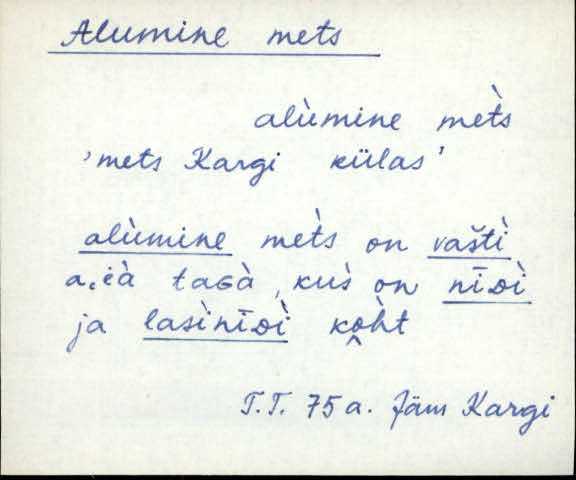 Alumine mets
alùmine met̀s
'mets Kargi külas'
alùmine met̀s on vaštì
taGà, kus̀ on nīDì
ja lasìnīDì kò̭ht
T.T. 75 a. Jäm Kargi